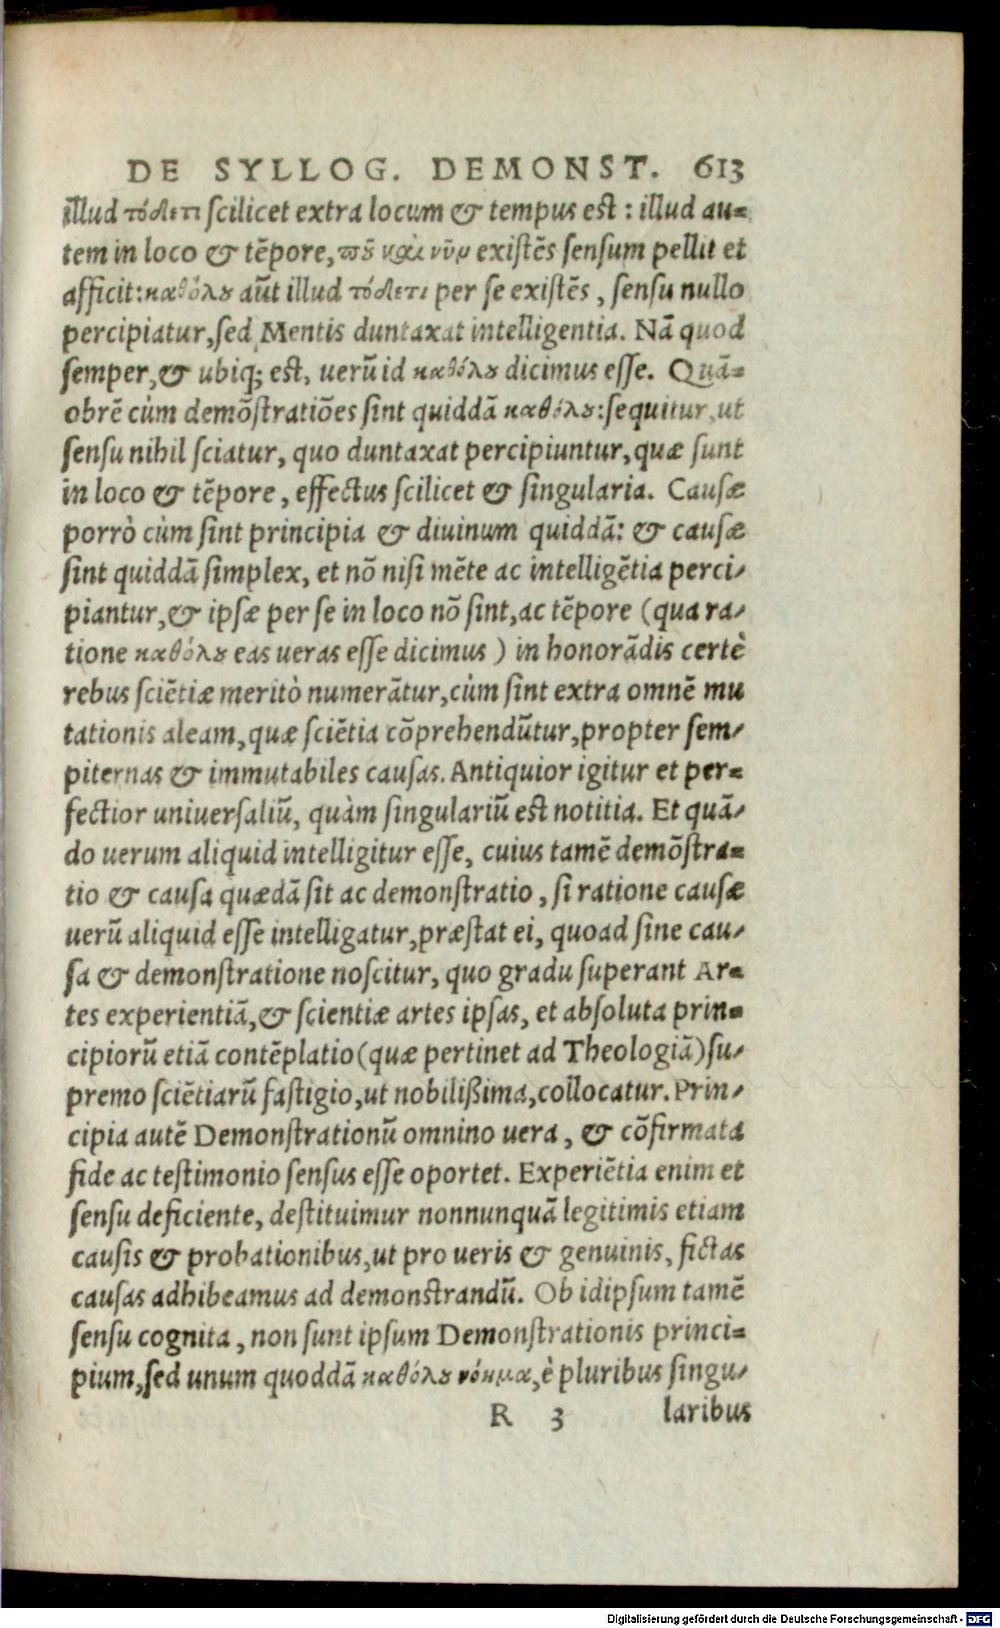 DE SYLLOG. DEMONST. 613
illud τόδετι scilicet extra locum & tempus est : illud au-
tem in loco & tēpore, ποῦ καὶ νῦν existēs sensum pellit et
afficit: καθόλου aūt illud τόδετι per se existēs, sensu nullo
percipiatur, sed Mentis duntaxat intelligentia. Nā quod
semper, & ubiq; est, uerū id καθόλου dicimus esse. Quā-
obrē cùm demōstratiōes sint quiddā καθόλου: sequitur, ut
sensu nihil sciatur, quo duntaxat percipiuntur, quæ sunt
in loco & tēpore, effectus scilicet & singularia. Causæ
porrò cùm sint principia & diuinum quiddā: & causæ
sint quiddā simplex, et nō nisi mēte ac intelligētia perci-
piantur, & ipsæ per se in loco nō sint, ac tēpore (qua ra-
tione καθόλου eas ueras esse dicimus ) in honorādis certè
rebus sciētiæ meritò numerātur, cùm sint extra omnē mu
tationis aleam, quæ sciētia cōprehendūtur, propter sem-
piternas & immutabiles causas. Antiquior igitur et per-
fectior uniuersaliū, quàm singulariū est notitia. Et quā-
do uerum aliquid intelligitur esse, cuius tamē demōstra-
tio & causa quædā sit ac demonstratio, si ratione causæ
uerū aliquid esse intelligatur, præstat ei, quoad sine cau-
sa & demonstratione noscitur, quo gradu superant Ar-
tes experientiā, & scientiæ artes ipsas, et absoluta prin-
cipiorū etiā contēplatio (quæ pertinet ad Theologiā) su-
premo sciētiarū fastigio, ut nobilißima, collocatur. Prin-
cipia autē Demonstrationū omnino uera, & cōfirmata
fide ac testimonio sensus esse oportet. Experiētia enim et
sensu deficiente, destituimur nonnunquā legitimis etiam
causis & probationibus, ut pro ueris & genuinis, fictas
causas adhibeamus ad demonstrandū. Ob idipsum tamē
sensu cognita, non sunt ipsum Demonstrationis princi-
pium, sed unum quoddā καθόλου νόημα, è pluribus singu-
R 3 laribus
Digitalisierung gefördert durch die Deutsche Forschungsgemeinschaft - DFG